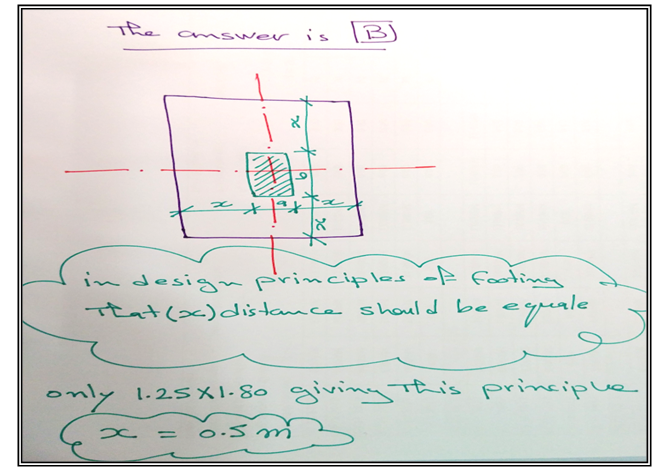 The answer is B
x
b
x a x
x
in design principles of footing
That (x) distance should be equale
only 1.25X1.80 giving This principlue
x = 0.5 m